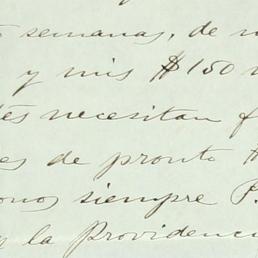 semanas, de
y mis $150
necesitan
es de pronto
siempre P.
la Providenc